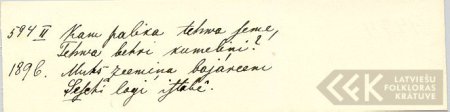 594 II Kam palika tehwa seme,
Tehwa behri kumeliņi?
1896. Muhs' zeemiņa bajareeni
Seschi logi istabē.
LATVIEŠU
FOLKLORAS
KRĀTUVE